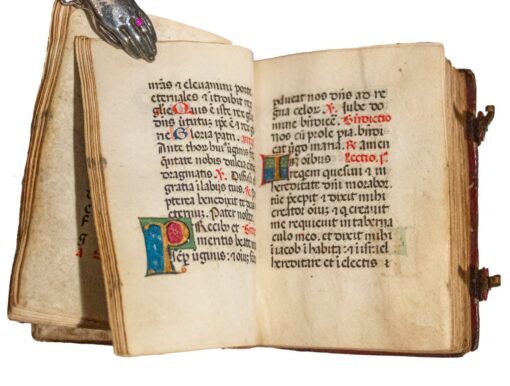 mãs & eleuamini porte
eternales & ĩtroibit rex
glie Quis ẽ iste rex glie
dñs ũtutuz ipẽ ẽ rex
Gloria patri.
Ante thor huiꝰ ũginis
quẽtate nobis dulcia
dragmatis ℣. Diffusa
gratia ĩ labijs tuis. ℟
pterea benedixit te
eternuz. Pater noster
Precibꝰ et
meritis beate
semp uginis : & oiuz
pducat nos dñs ad re
gna celor. ℟. Jube do
mine bñdicẽ. Bñdictio
nos cũ prole pia. bñdi
cat ũgo maria. ℟ amen
In oibus Lectio. j.
reqem quesiui & in
hereditate dñi morabor.
tũc pcepit & dixit mihi
creator oiuz & q creauit
me requieuit in taberna
culo meo. et dixit mihi
i iacob ĩhabita : & i isrl
hereditare et i electis &